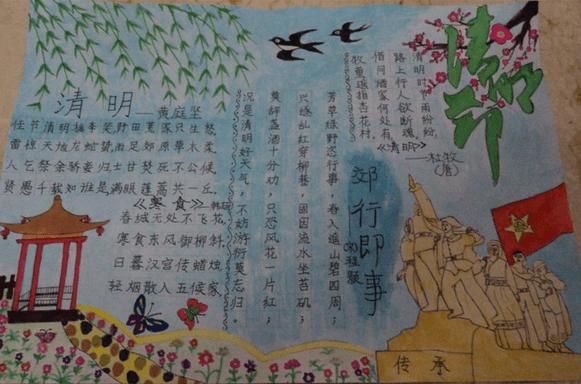 清明节
清明—黄庭坚
佳节清明桃李笑野田荒冢只生愁
雷惊天地龙蛇蛰雨足郊原草木柔
人乞祭余骄妾归士甘焚死不公候
贤愚千载知谁是满眼蓬蒿共一丘
《寒食》
春城无处不飞花
寒食东风御柳斜
日暮汉宫传蜡烛
轻烟散入五侯家
清明时节雨纷纷,
路上行人欲断魂
借问酒家何处有
牧童遥指杏花村,
《清明》
—杜牧
(唐)
郊行即事
(宋)程颢
芳草绿野恣行事,春入遥山碧四周;
兴逐乱红穿柳巷,困因流水坐苔矶;
莫辞盏酒十分劝,只恐风花一片红;
况是清明好天气,不妨游衍莫忘归。
传承